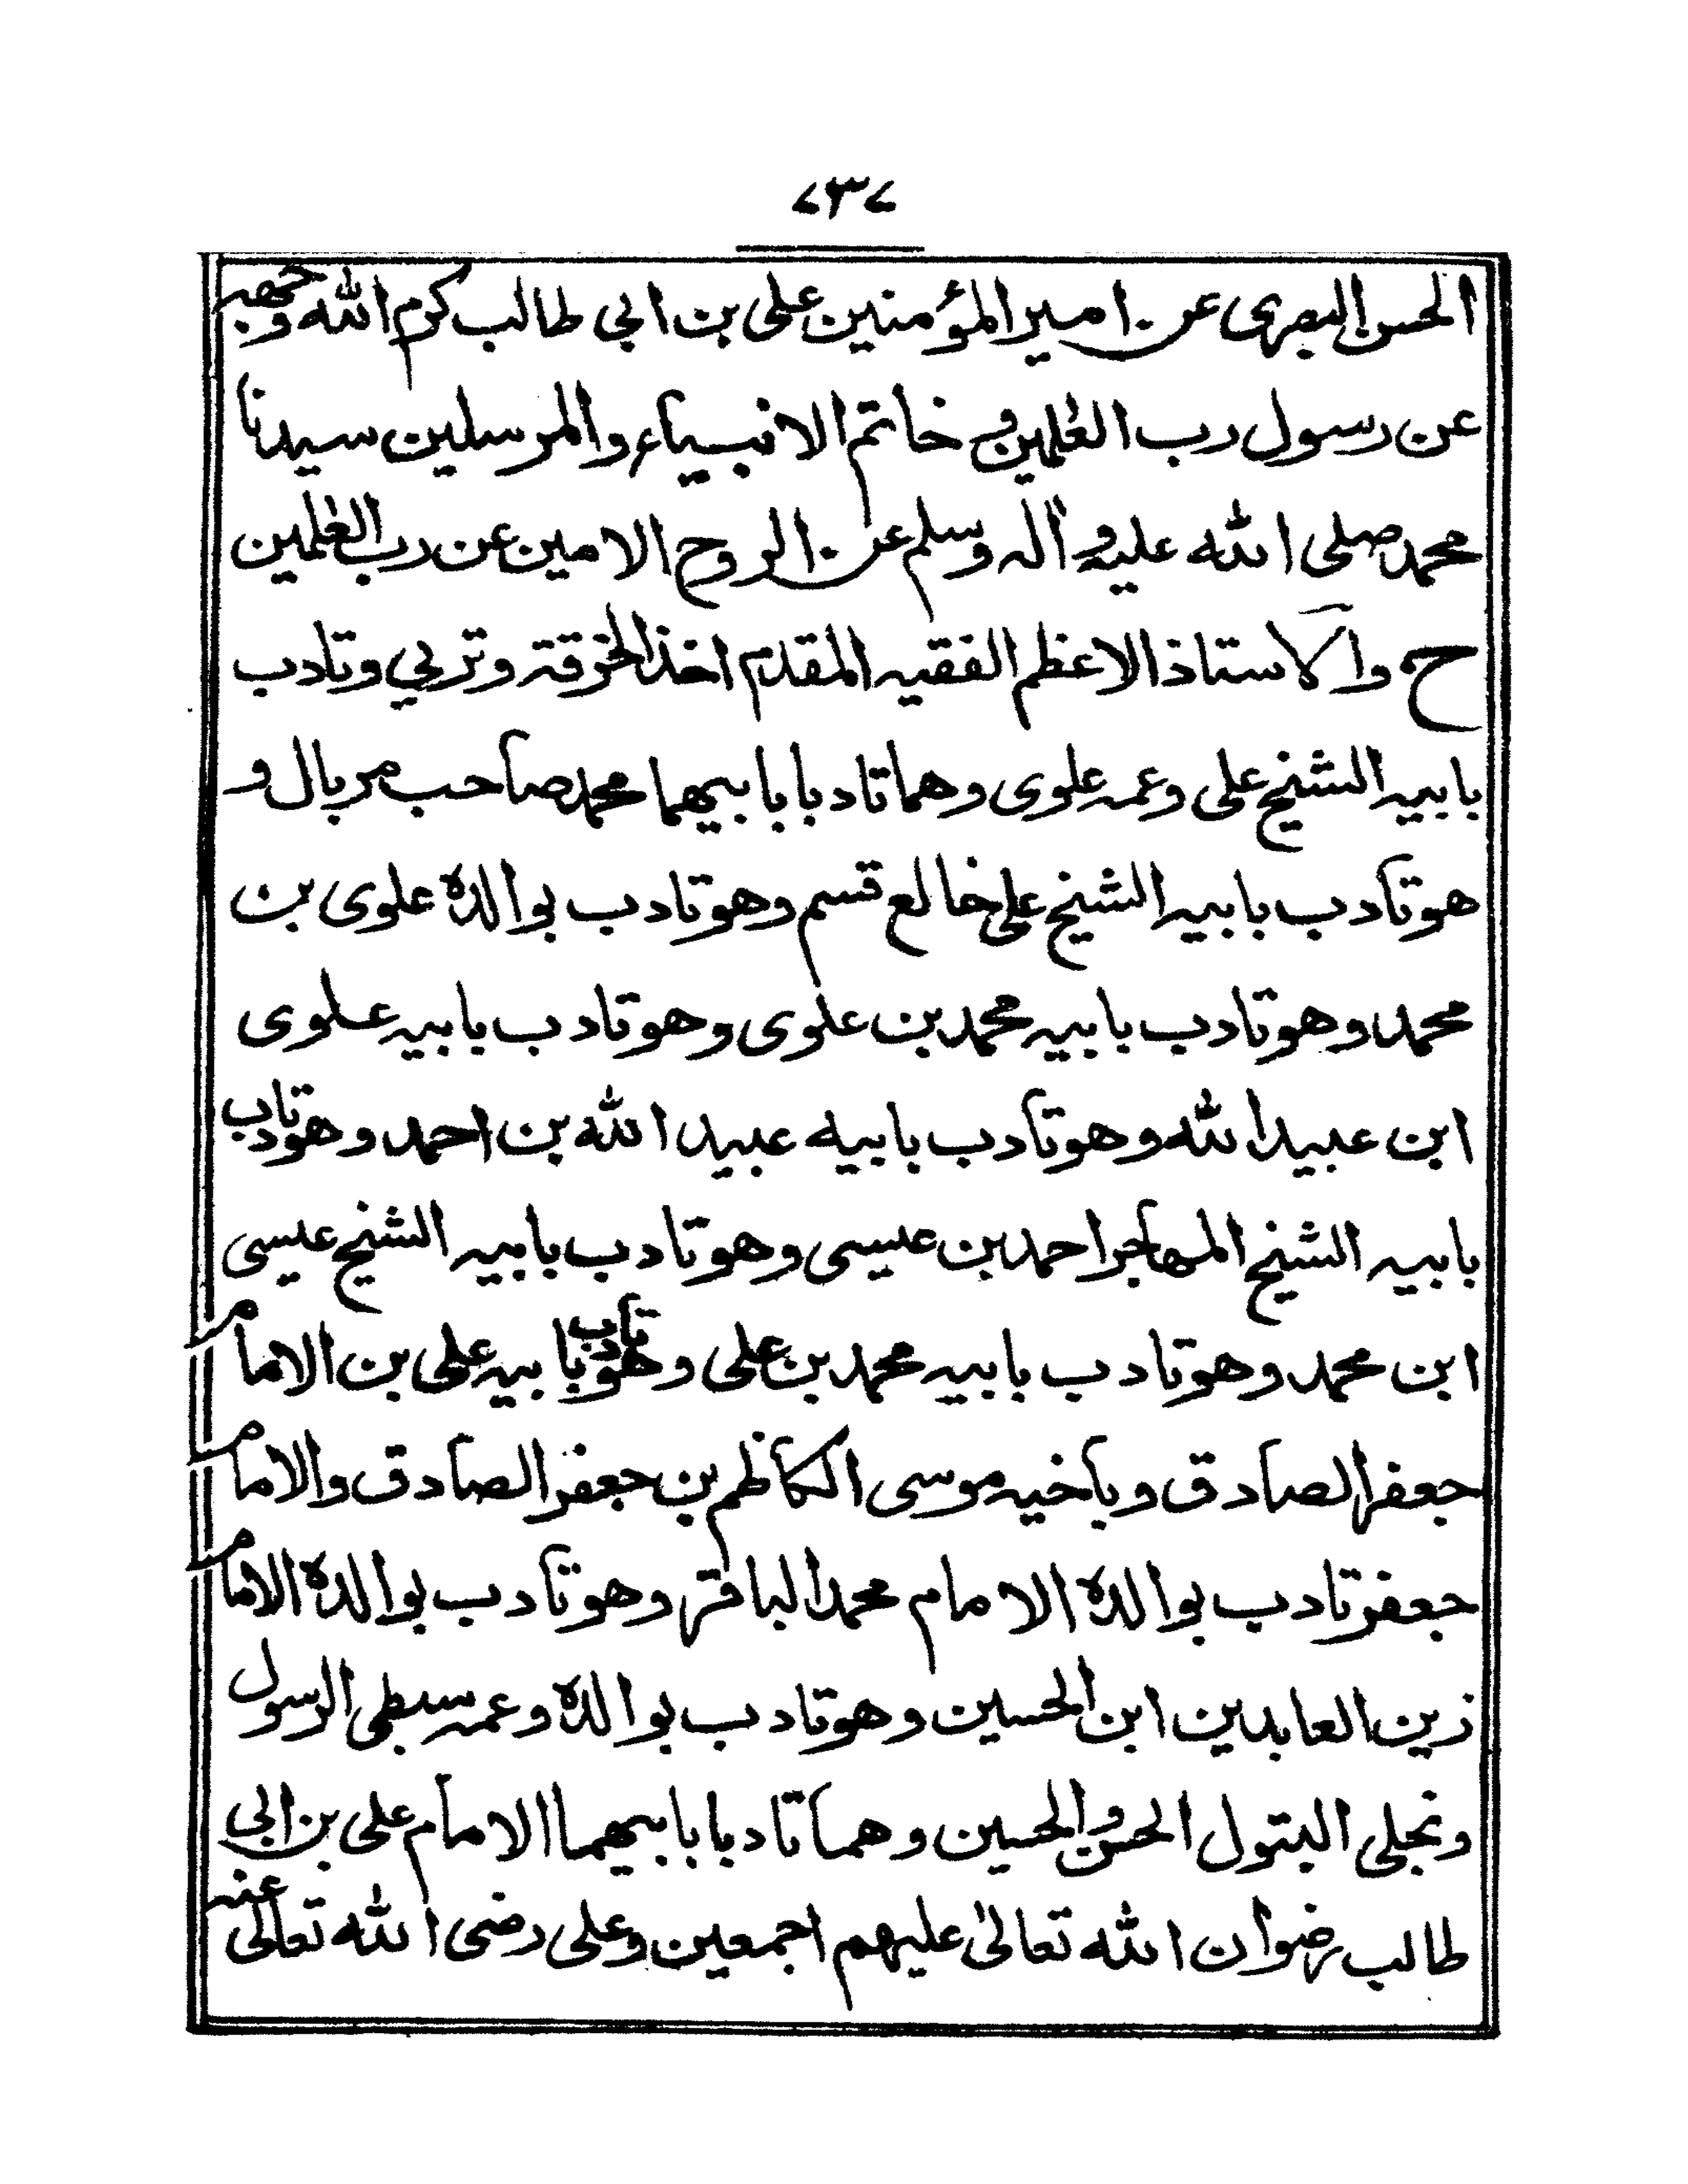 ٧٣٧
الحسن البصرى عن امير المؤمنين على بن ابي طالب كرم الله وجهه
عن رسول رب العٰلمين و خاتم الانبياء والمرسلين سيدنا
محمد صلى الله عليه و اله وسلم عن الروح الامين عن رب العٰلمين
ح والاستاذ الاعظم الفقيه المقدم اخذ الخرقة وتربي وتادب
بابيه الشيخ على وعمه علوى وهما تادبا بابيهما محمد صاحب مرباط و
هو تادب بابيه الشيخ على خالع قسم وهو تادب بوالده علوى بن
محمد وهو تادب بابيه محمد بن علوى وهو تادب بابيه علوى
ابن عبيد الله وهو تادب بابيه عبيد الله بن احمد وهو تادب
بابيه الشيخ المهاجر احمد بن عيسى وهو تادب بابيه الشيخ عيسى
ابن محمد وهو تادب بابيه محمد بن على وهو تادب بابيه على بن الامام
جعفر الصادق وباخيه موسى الكاظم بن جعفر الصادق والامام
جعفر تادب بوالده الامام محمد الباقر وهو تادب بوالده الامام
زين العابدين ابن الحسين وهو تادب بوالده وعمه سبطى الرسول
ونجلى البتول الحسن والحسين وهما تادبا بابيهما الامام على بن ابي
طالب رضوان الله تعالىٰ عليهم اجمعين وعلى رضى الله تعالى عنه